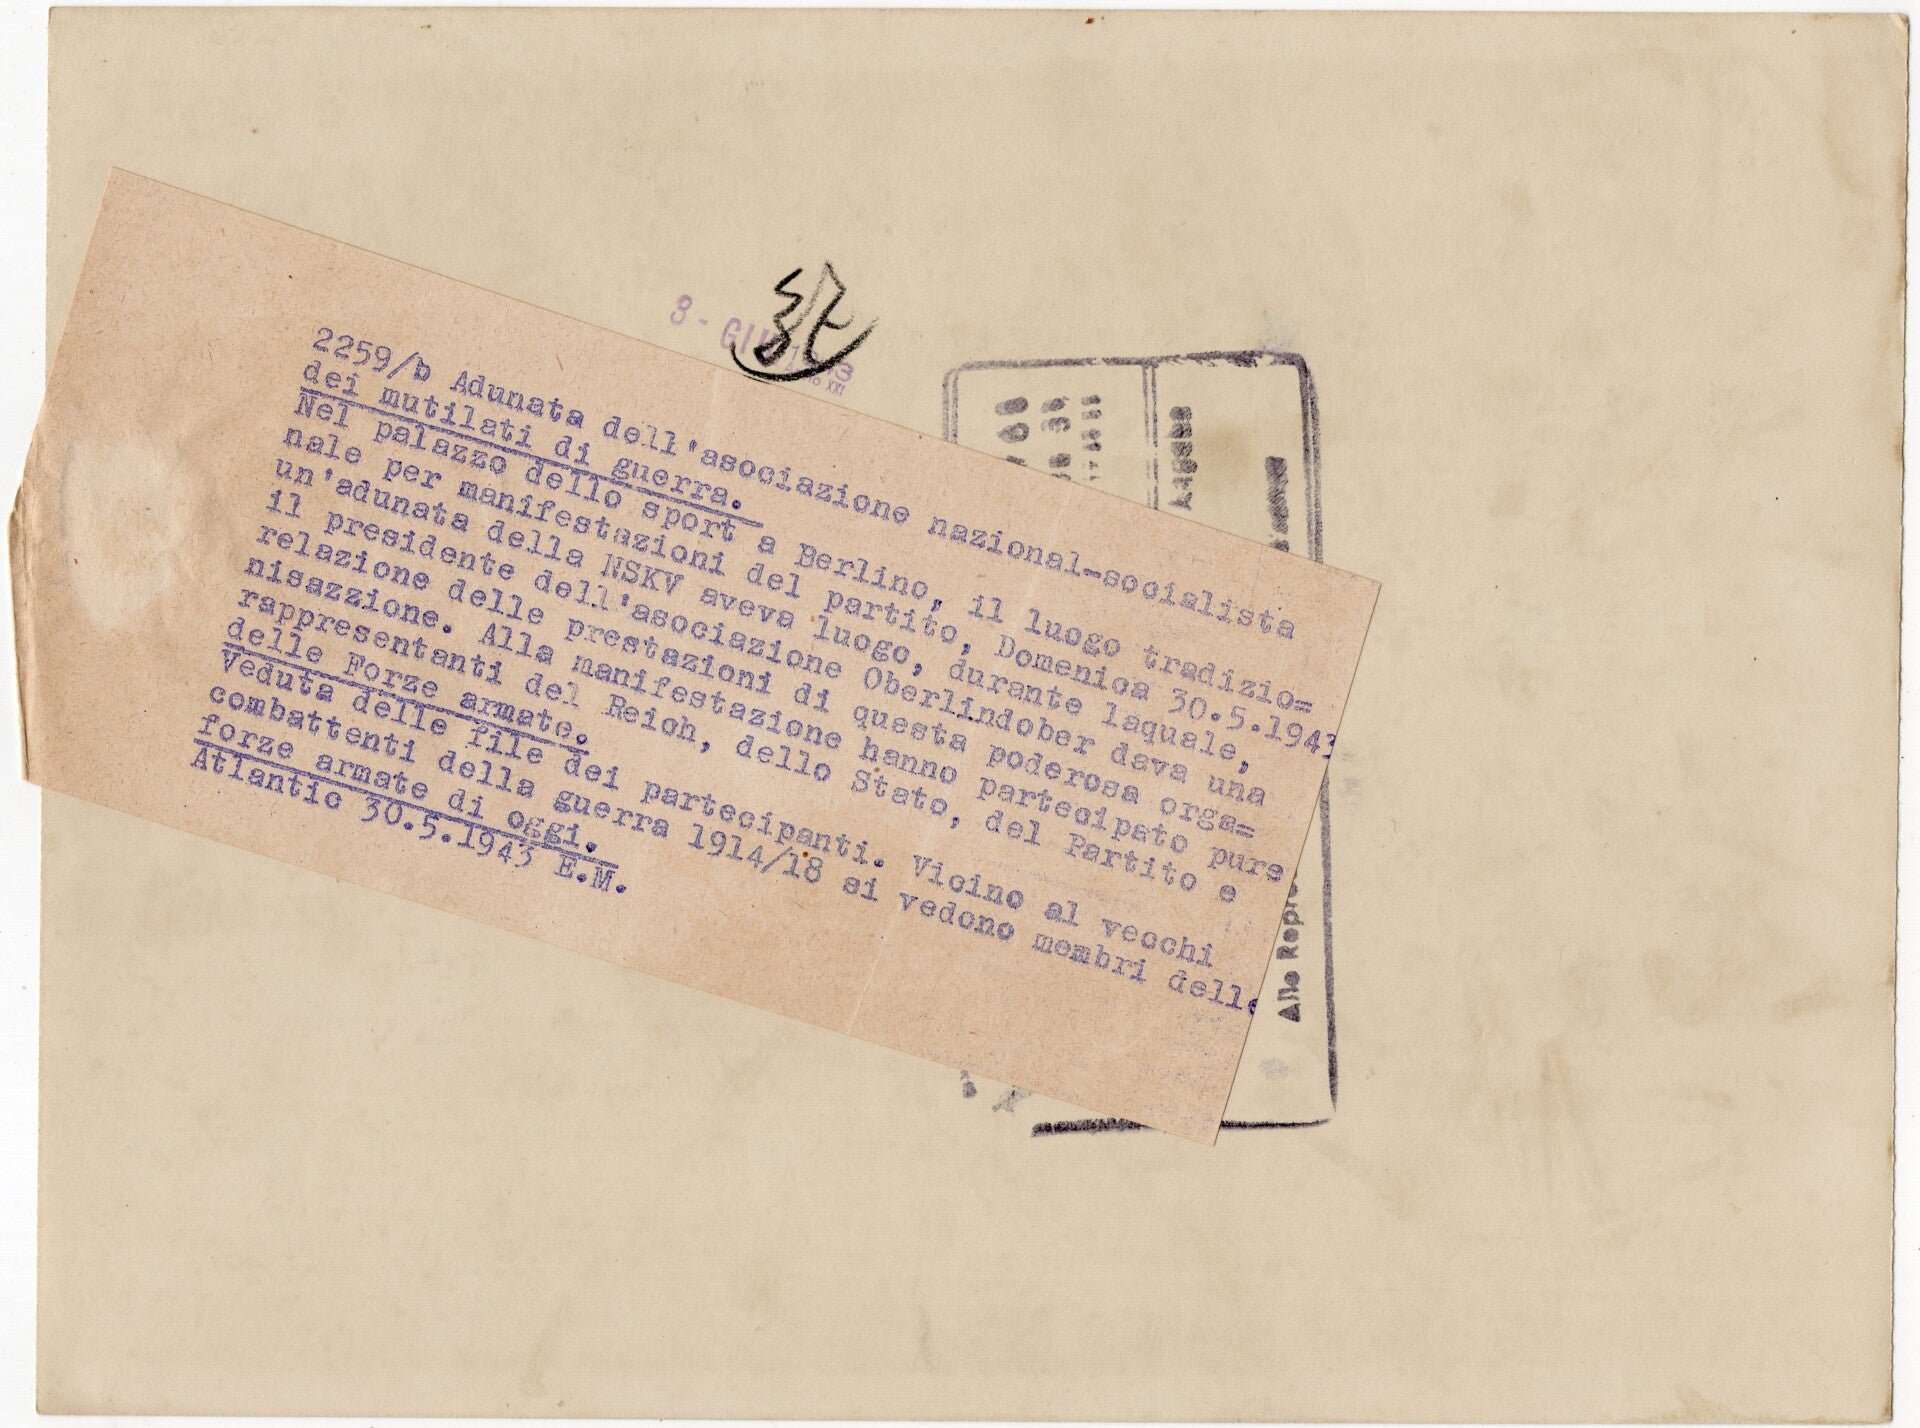 2259/b Adunata dell'asociazione nazional-socialista
dei mutilati di guerra.
Nel palazzo dello sport a Berlino, il luogo tradizio=
nale per manifestazioni del partito, Domenica 30.5.1943
un'adunata della NSKV aveva luogo, durante laquale,
il presidente dell'asociazione Oberlindober dava una
relazione delle prestazioni di questa poderosa orga=
nisazzione. Alla manifestazione hanno partecipato pure
rappresentanti del Reich, dello Stato, del Partito e
delle Forze armate.
Veduta delle file dei partecipanti. Vicino al vecchi
combattenti della guerra 1914/18 si vedono membri delle
forze armate di oggi.
Atlantic 30.5.1943 E.M.
3 - GIU
XXI
Alle Repro